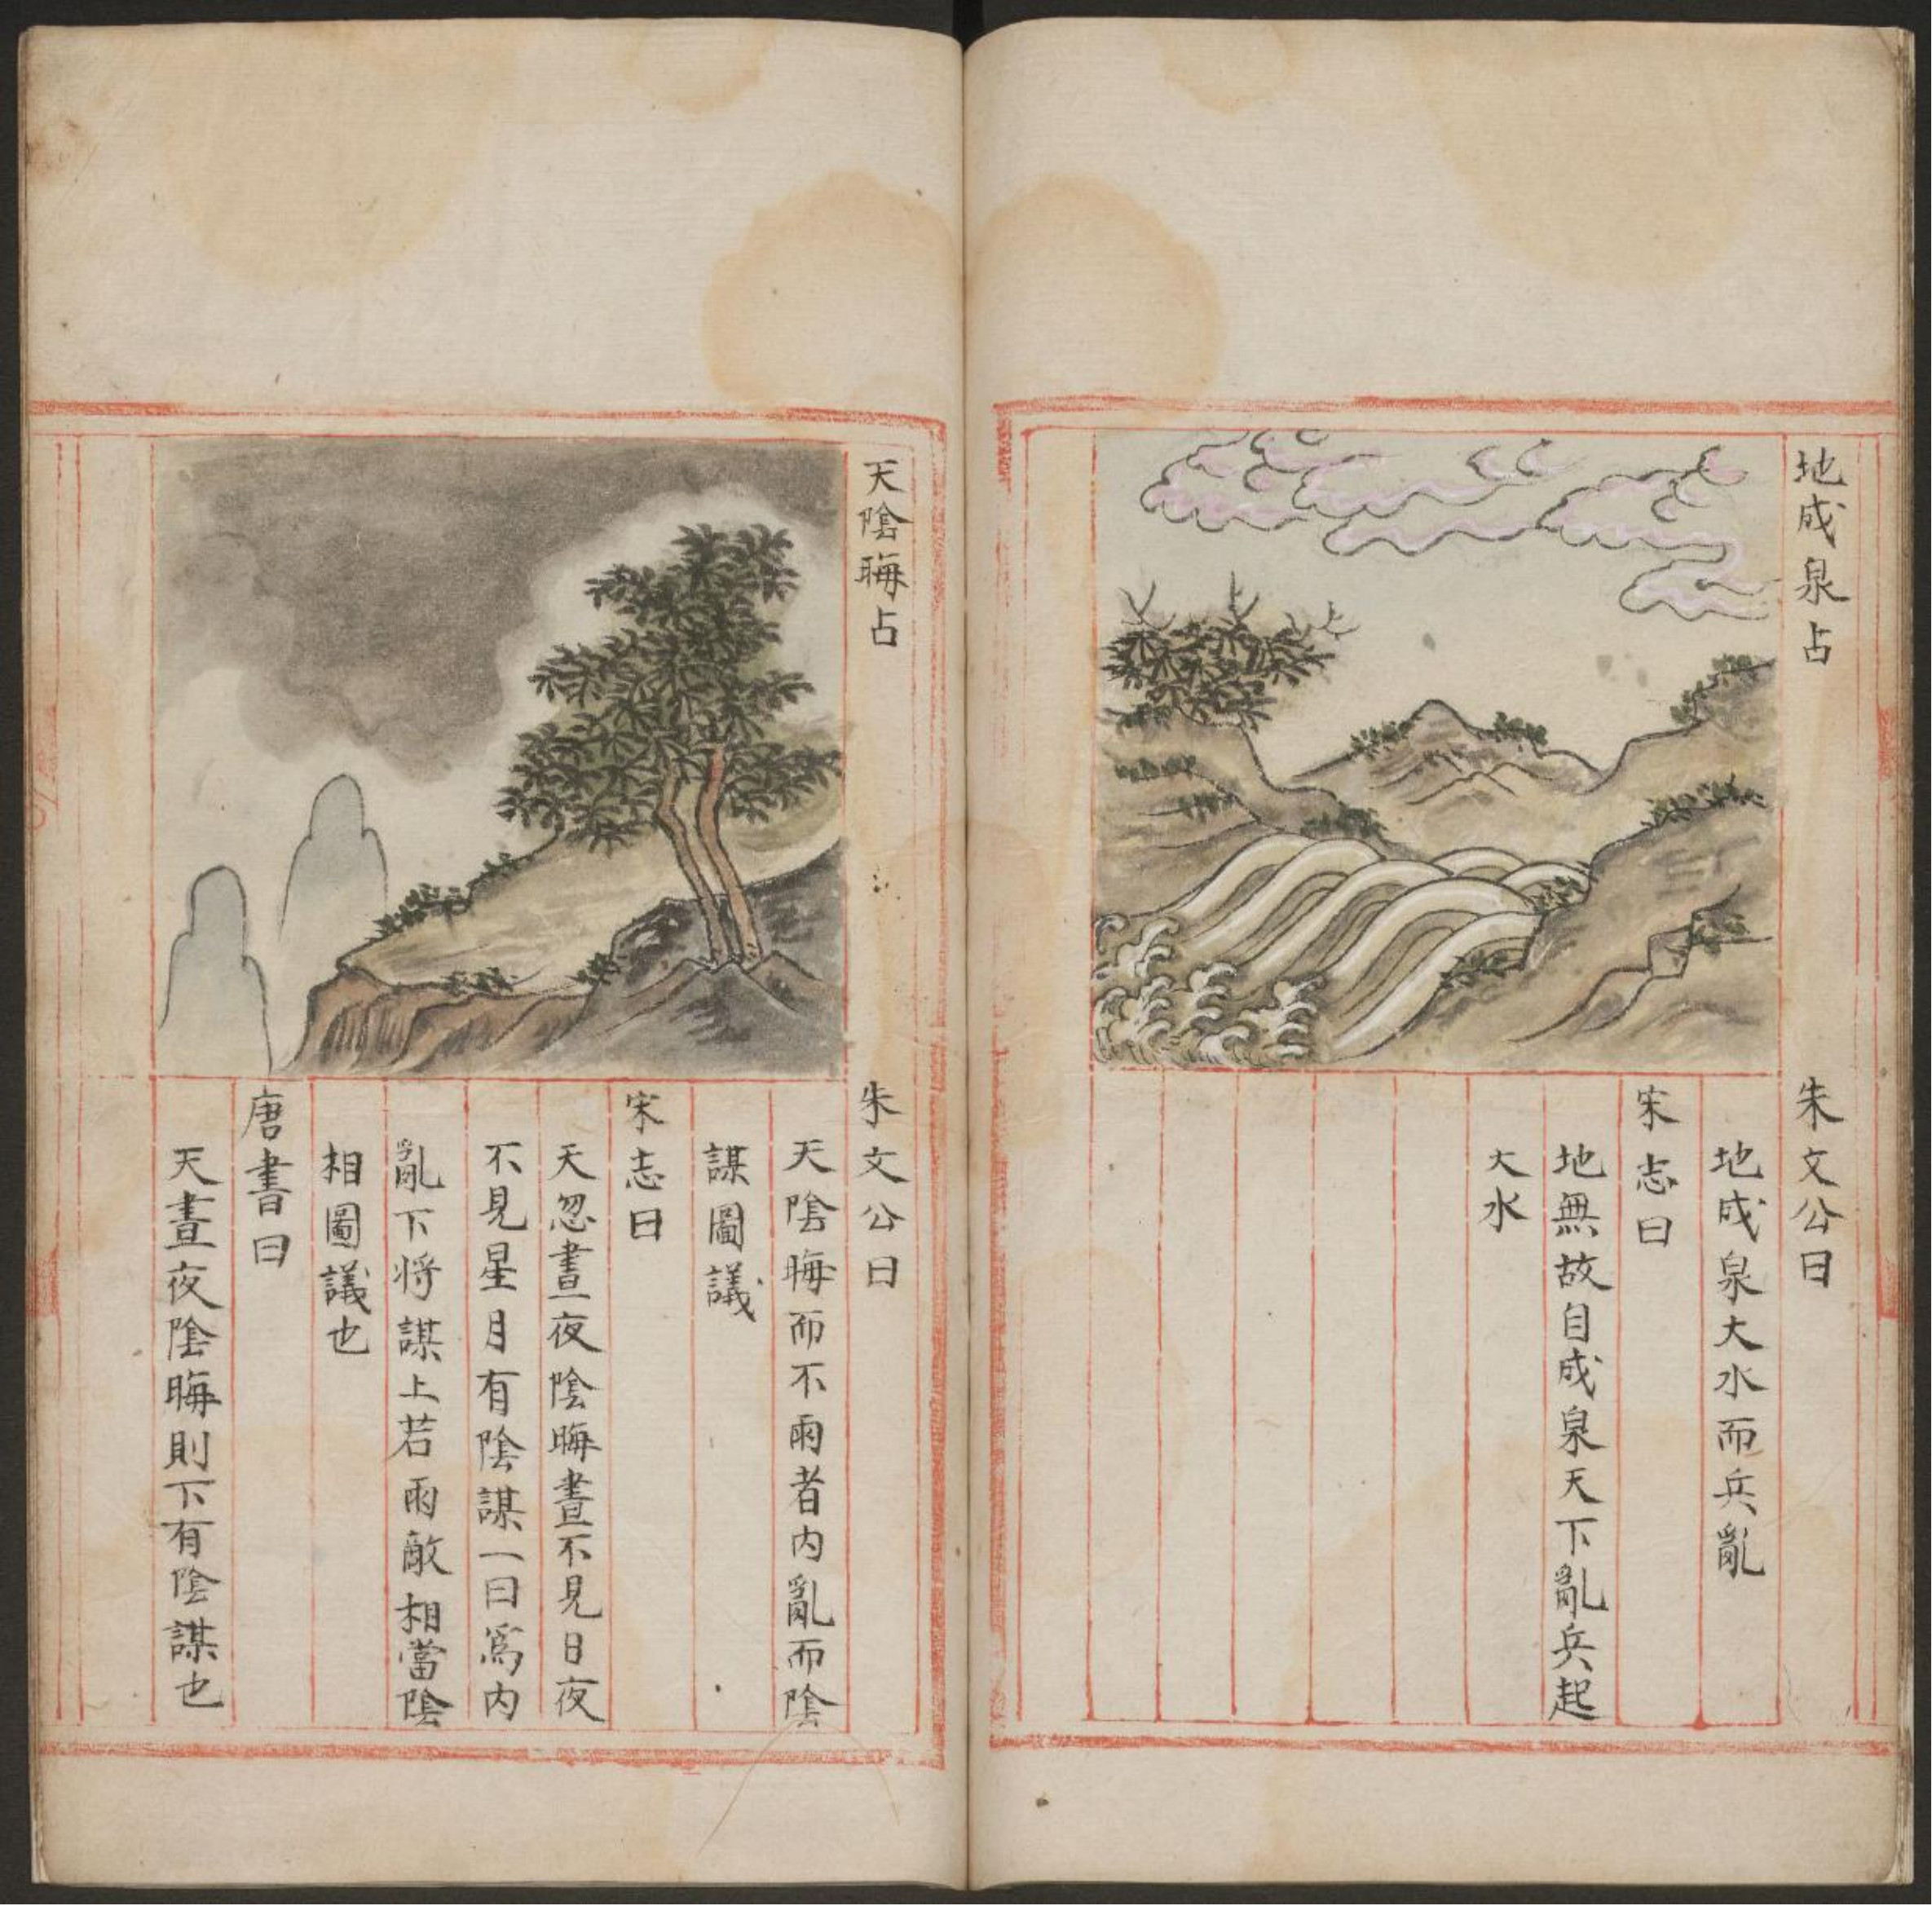 地成泉占
朱文公曰
地成泉大水而兵亂
宋志曰
地無故自成泉天下亂兵起
大水
天陰晦占
朱文公曰
天陰晦而不雨者内亂而陰
謀圖議
宋志曰
天忽晝夜陰晦晝不見日夜
不見星月有陰謀一曰爲内
亂下将謀上若雨敵相當陰
相圖議也
唐書曰
天晝夜陰晦則下有陰謀也